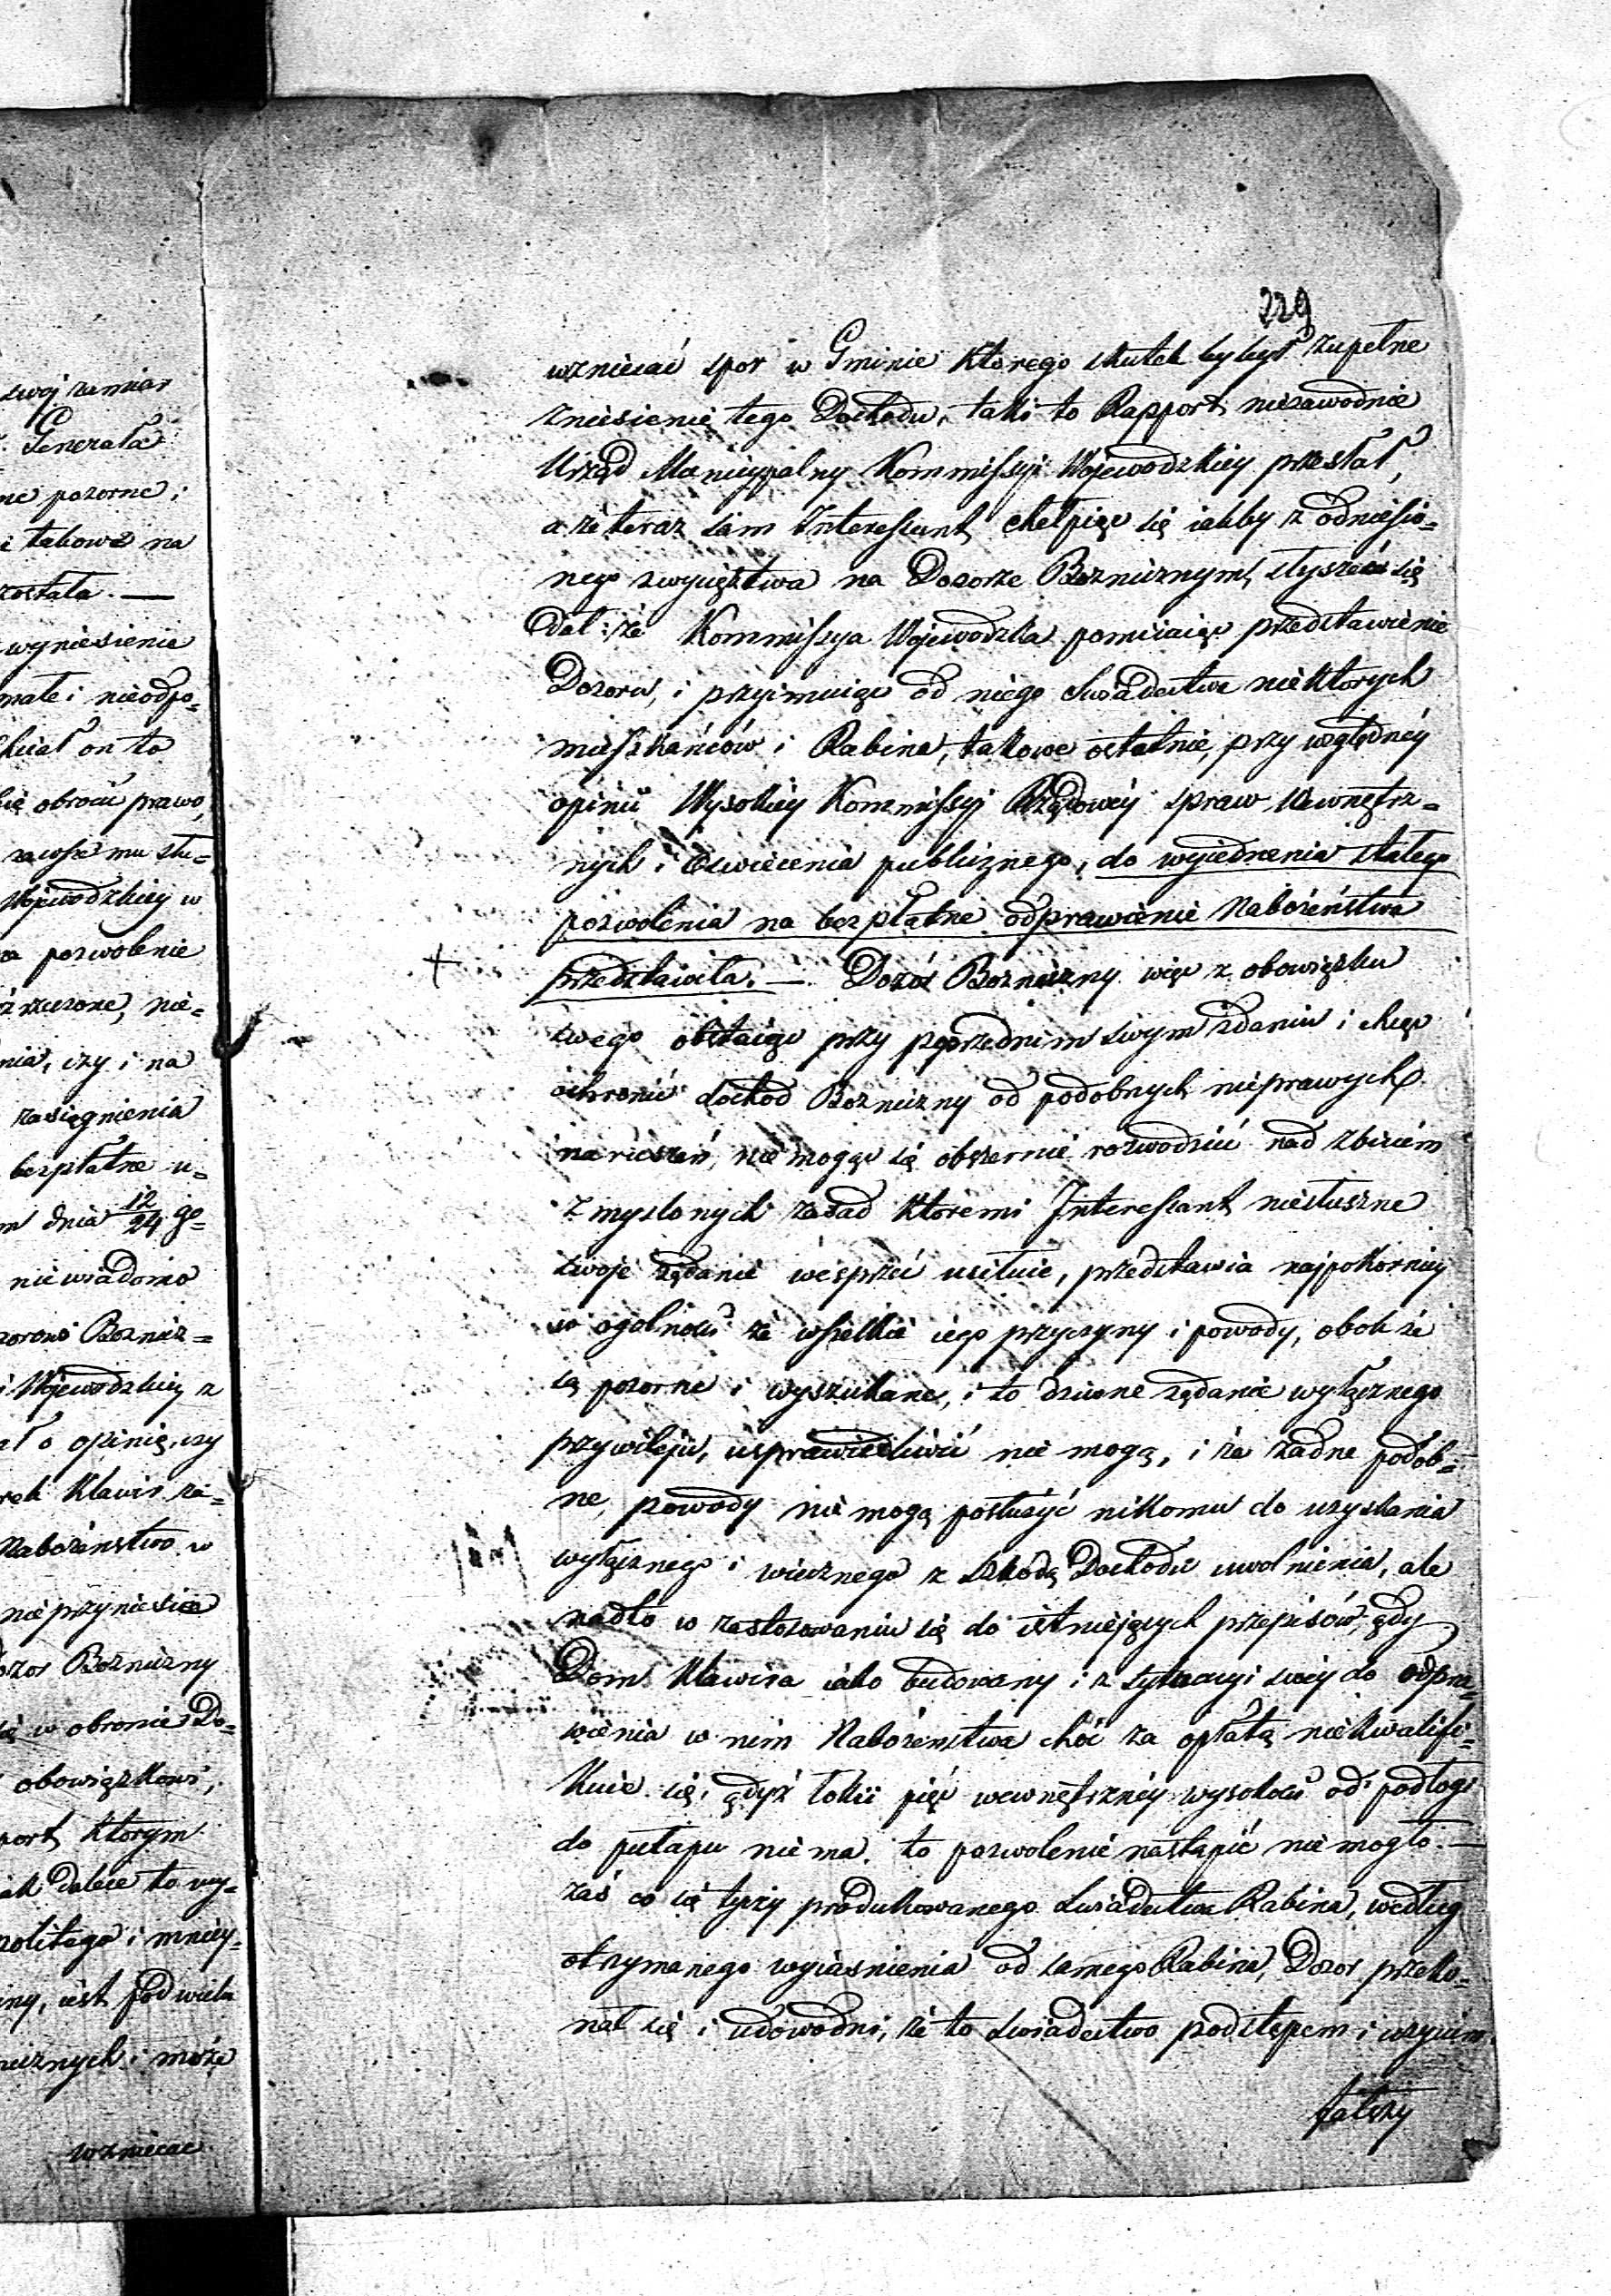 swój zamiar
Generała
ne pozorne i
i takowe na
została. —
wyniesienie
małe i nieodpo=
chciał on to
się obrócić prawo,
zawsze mu słu=
Wojewodzkiey w
na pozwolenie
rzeczone, nie=
nia, czy i na
zasięgnienia
bezpłatne u=
m dnia 12/24 go=
niewiadomo
Bożnicz=
i Wojewodzkiey z
ał o opinię, czy
rek Klawir za=
Nabożeństwo w
nie przyniesie
ozor Bożniczny
się w obronie Do=
obowiązkowi,
port którym
jak dalece to wy=
i mniey=
iny, jest pod wielu
i może
wzniecać
229
wzniecać spor w Gminie którego skutek byłby zupełne
zniesienie tego Dochodu, taki to Rapport niezawodnie
Urząd Municypalny Kommissyi Wojewodzkiey przesłał,
a że teraz sam Interessant chełpiąc się iakby z odniesio=
nego zwycięztwa na Dozorze Bożnicznym, słyszeć się
dał: że Kommissya Wojewodzka pomiiaiąc przedstawienie
Dozoru, i przyimuiąc od niego świadectwa niektorych
mieszkańców i Rabina, takowe ostatnie, przy względnéy
opinii Wysokiey Kommissyi Rządowéy spraw Wewnętrz=
nych i Oświecenia publicznego, do wyiednania stałego
pozwolenia na bezpłatne odprawianie Nabożeństwa
+
przedstawiła. — Dozór Bożniczny więc z obowiązku
swego obstaiąc przy poprzednim swym zdaniu i chcąc
ochronić dochod Bożniczny od podobnych nieprawych
narieszeń, nie mogąc się obszernie rozwodzić nad zbiciem
zmyslonych zasad ktoremi Interessant niesłuszne
swoje żądanie wesprzeć usiłuie, przedstawia najpokorniey
w ogolności że wszelkie iego przyczyny i powody, obok że
są pozorne i wyszukane, i to dziwne żądanie wyłącznego
przywileju, usprawiedliwić nie mogą, i że żadne podob=
ne powody nie mogą posłużyć nikomu do uzyskania
wyłącznego i wiecznego z szkodą Dochodu uwolnienia, ale
nadto w zastosowaniu się do istniejących przepisów, gdy
Dom Klawira iako budowany i z sytuacyi swey do odpra=
wienia w nim Nabożenstwa choć za opłatą niekwalifi=
kuie się, gdyż łokci pięć wewnętrznéy wysokości od podłogi
do pułapu niema, to pozwolenie nastąpić nie mogło. —
zaś co się tyczy produkowanego świadectwa Rabina, według
otrzymanego wyiaśnienia od samego Rabina, Dozor przeko=
nał się i udowodni, że to świadectwo podstępem i użyciem
fałszy